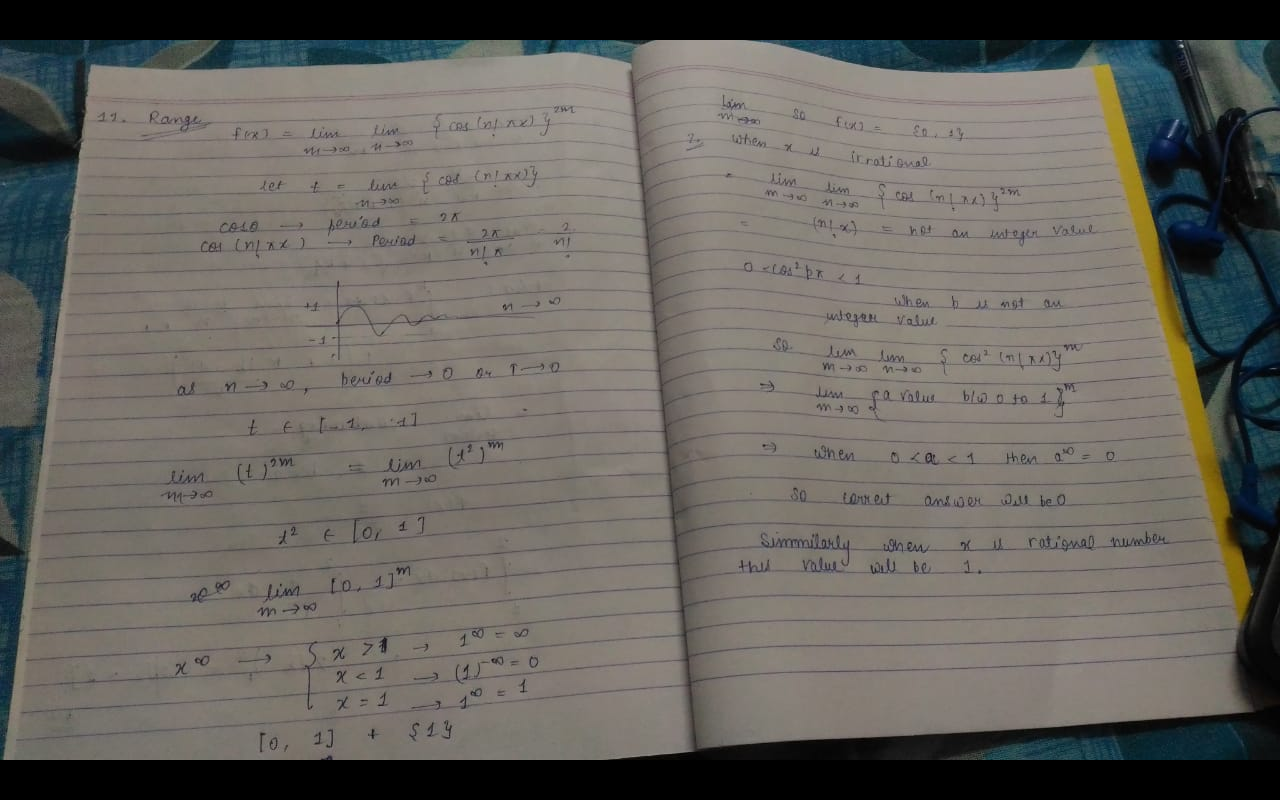 11. Range
f(x) = lim m→∞ lim n→∞ { cos (n! πx) }^2m
let t = lim n→∞ { cos (n! πx) }
cosθ → period = 2π
cos (n! πx) → Period = 2π/n! π 2/n!
+1
n → ∞
-1
as n → ∞, period → 0 or T → 0
t ∈ [-1, 1]
lim m→∞ (t)^2m = lim m→∞ (t²)^m
t² ∈ [0, 1]
lim m→∞ [0, 1]^m
x^∞ → { x > 1 → 1^∞ = ∞
x < 1 → (1)^-∞ = 0
x = 1 → 1^∞ = 1
[0, 1] + {1}
Lim m→∞ so f(x) = {0, 1}
2. when x is irrational
= lim m→∞ lim n→∞ { cos (n! πx) }^2m
= (n! x) = not an integer value
0 < cos² pπ < 1
when p is not an
integer value
So lim m→∞ lim n→∞ { cos² (n! πx) }^m
⇒ lim m→∞ { a value b/w 0 to 1 }^m
⇒ when 0 < a < 1 then a^∞ = 0
So correct answer will be 0
Simmilarly when x is rational number
this value will be 1.